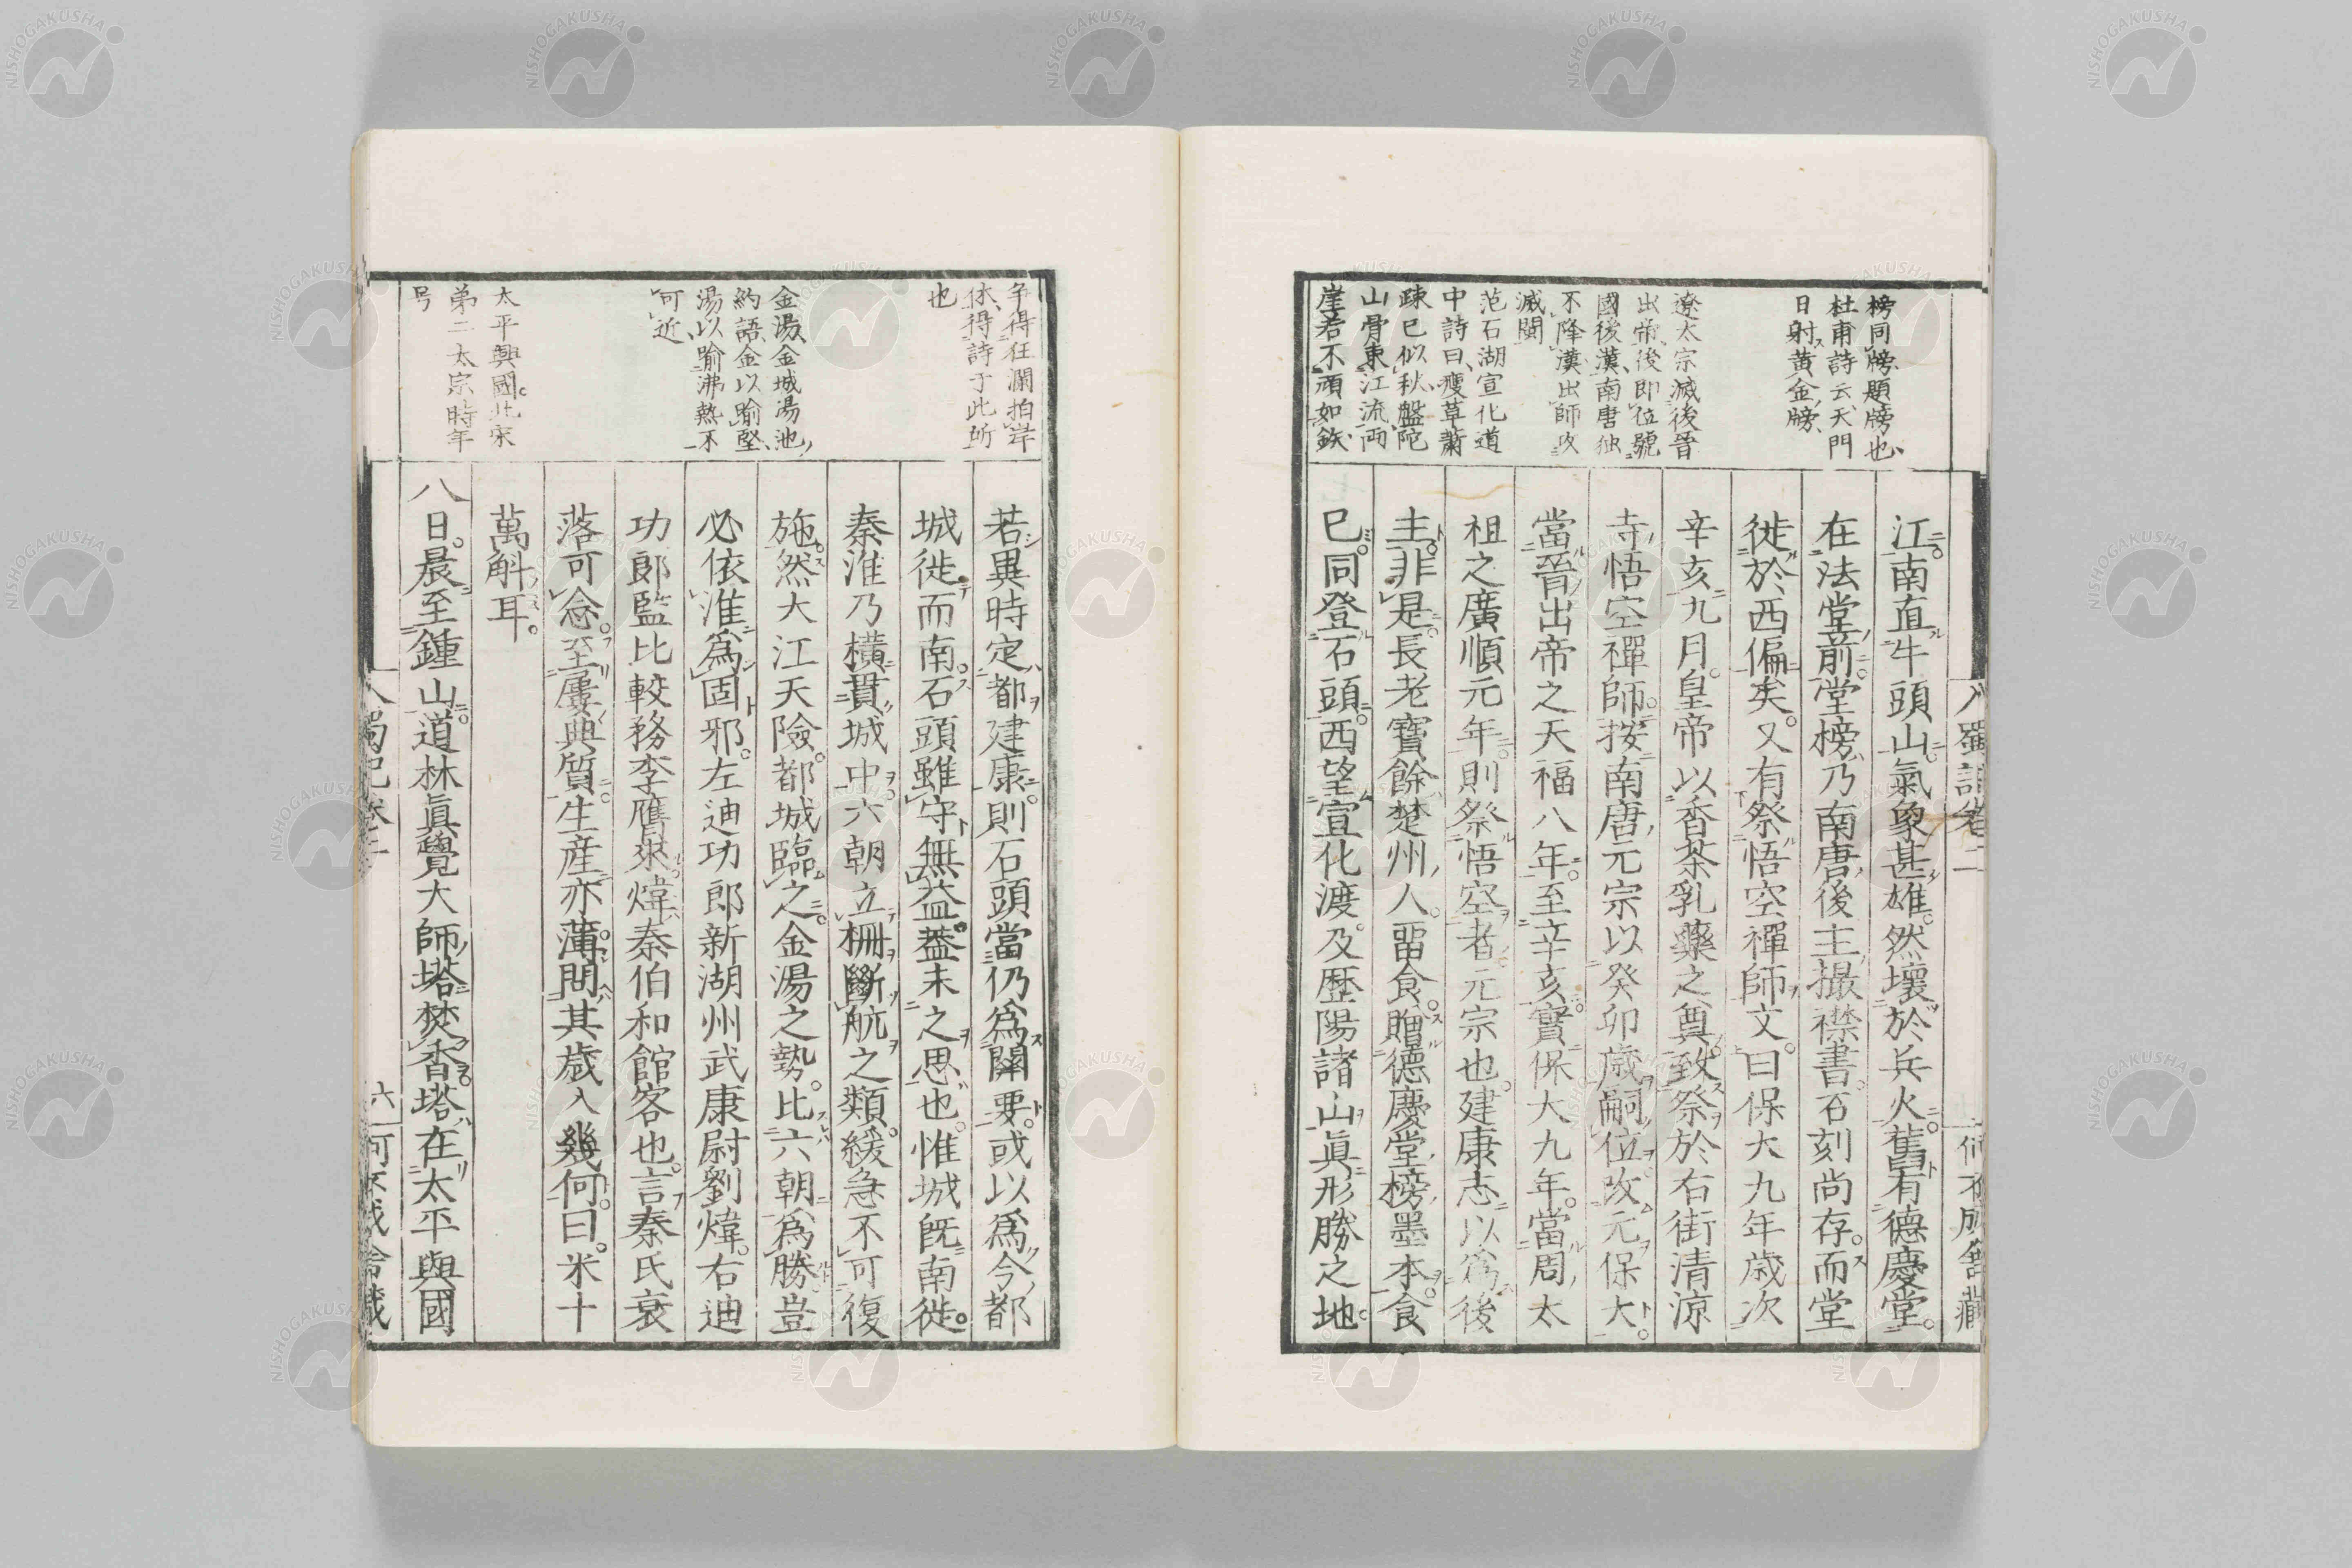 入蜀記卷二
何不成舍藏
榜同牓題牓也
杜甫詩云天門
日射黄金牓
遼太宗滅後晉
出帝後即位號
國後漢南唐独
不降漢出師攻
滅閩
范石湖宣化道
中詩曰瘦草蕭
疎已似秋盤陀
山骨東江流両
崖若不頑如鉄
江南直牛頭山氣象甚雄然壞於兵火舊有德慶堂
在法堂前堂榜乃南唐後主撮襟書石刻尚存而堂
徙於西偏矣又有祭悟空禪師文曰保大九年歳次
辛亥九月皇帝以香茶乳藥之奠致祭於右街清涼
寺悟空禪師按南唐元宗以癸卯歳嗣位改元保大
當晉出帝之天福八年至辛亥實保大九年當周太
祖之廣順元年則祭悟空者元宗也建康志以爲後
主非是長老寶餘楚州人畱食贈德慶堂榜墨本食
已同登石頭西望宣化渡及歴陽諸山眞形勝之地
争得狂瀾拍岸
休得詩于此所
也
金湯金城湯池
約語金以喻堅
湯以喻沸熱不
可近
太平興國北宋
第二太宗時年
号
若異時定都建康則石頭當仍爲關要或以爲今都
城徙而南石頭雖守無益蓋未之思也惟城既南徙
秦淮乃横貫城中六朝立柵斷航之類緩急不可復
施然大江天險都城臨之金湯之勢比六朝爲勝豈
必依淮爲固邪左迪功郎新湖州武康尉劉煒右迪
功郎監比較務李膺來煒秦伯和館客也言秦氏衰
落可念至屢典質生産亦薄問其歳入幾何曰米十
萬斛耳
八日晨至鍾山道林眞覺大師塔焚香塔在太平興國
入蜀記卷二
六
何不成舍藏